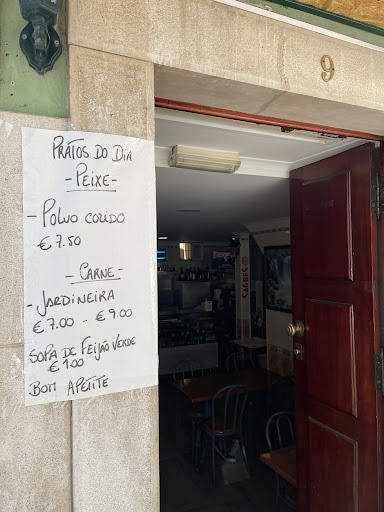 PRATOS DO DIA
- PEIXE -
- POLVO COZIDO
€ 7.50
- CARNE -
- JARDINEIRA
€ 7.00 - € 9.00
SOPA DE FEIJÃO VERDE
€ 1.00
BOM APETITE
9
SAGRES